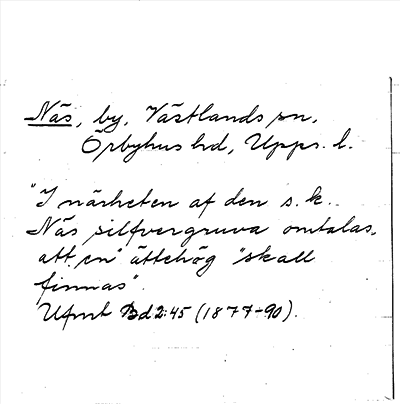 Näs, by, Västlands sn,
Örbyhus hd, Upps. l.
"I närheten af den s.k.
Näs silfvergruva omtalas,
att "en" ättehög "skall
finnas".
Ufmt Bd 2:45 (1877-90).